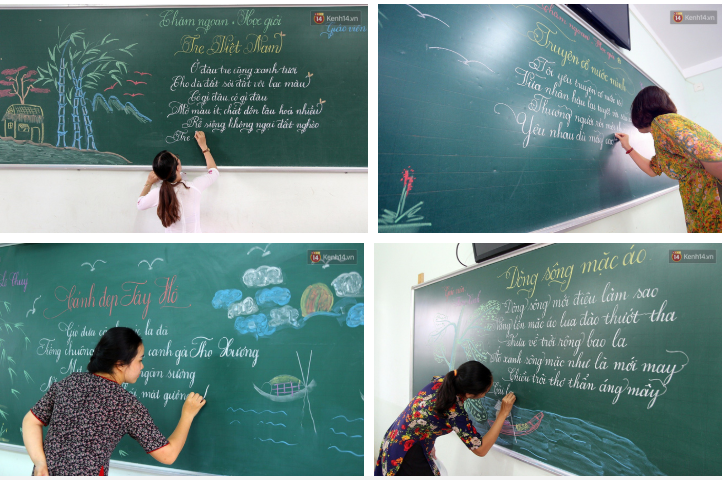 Chăm ngoan - Học giỏi
Giáo viên
Tre Việt Nam
Ở đâu tre cũng xanh tươi
Cho dù đất sỏi đất vôi bạc màu
Có gì đâu, có gì đâu
Mỡ màu ít, chất dồn lâu hoá nhiều
Rễ siêng không ngại đất nghèo
Tre
14 Kenh14.vn
Truyện cổ nước mình
Tôi yêu truyện cổ nước
Vừa nhân hậu lại tuyệt
Thương người rồi mới
Yêu nhau dù mấy cách
14 Kenh14.vn
Cảnh đẹp Tây Hồ
Gió đưa la đà
chuông canh gà Thọ Xương
ngàn sương
mặt gương
14 Kenh14.vn
Dòng sông mặc áo
Dòng sông mới điệu làm sao
Nắng lên mặc áo lụa đào thướt tha
Trưa về trời rộng bao la
Áo xanh sông mặc như là mới may
Chiều trôi thơ thẩn áng mây
14 Kenh14.vn